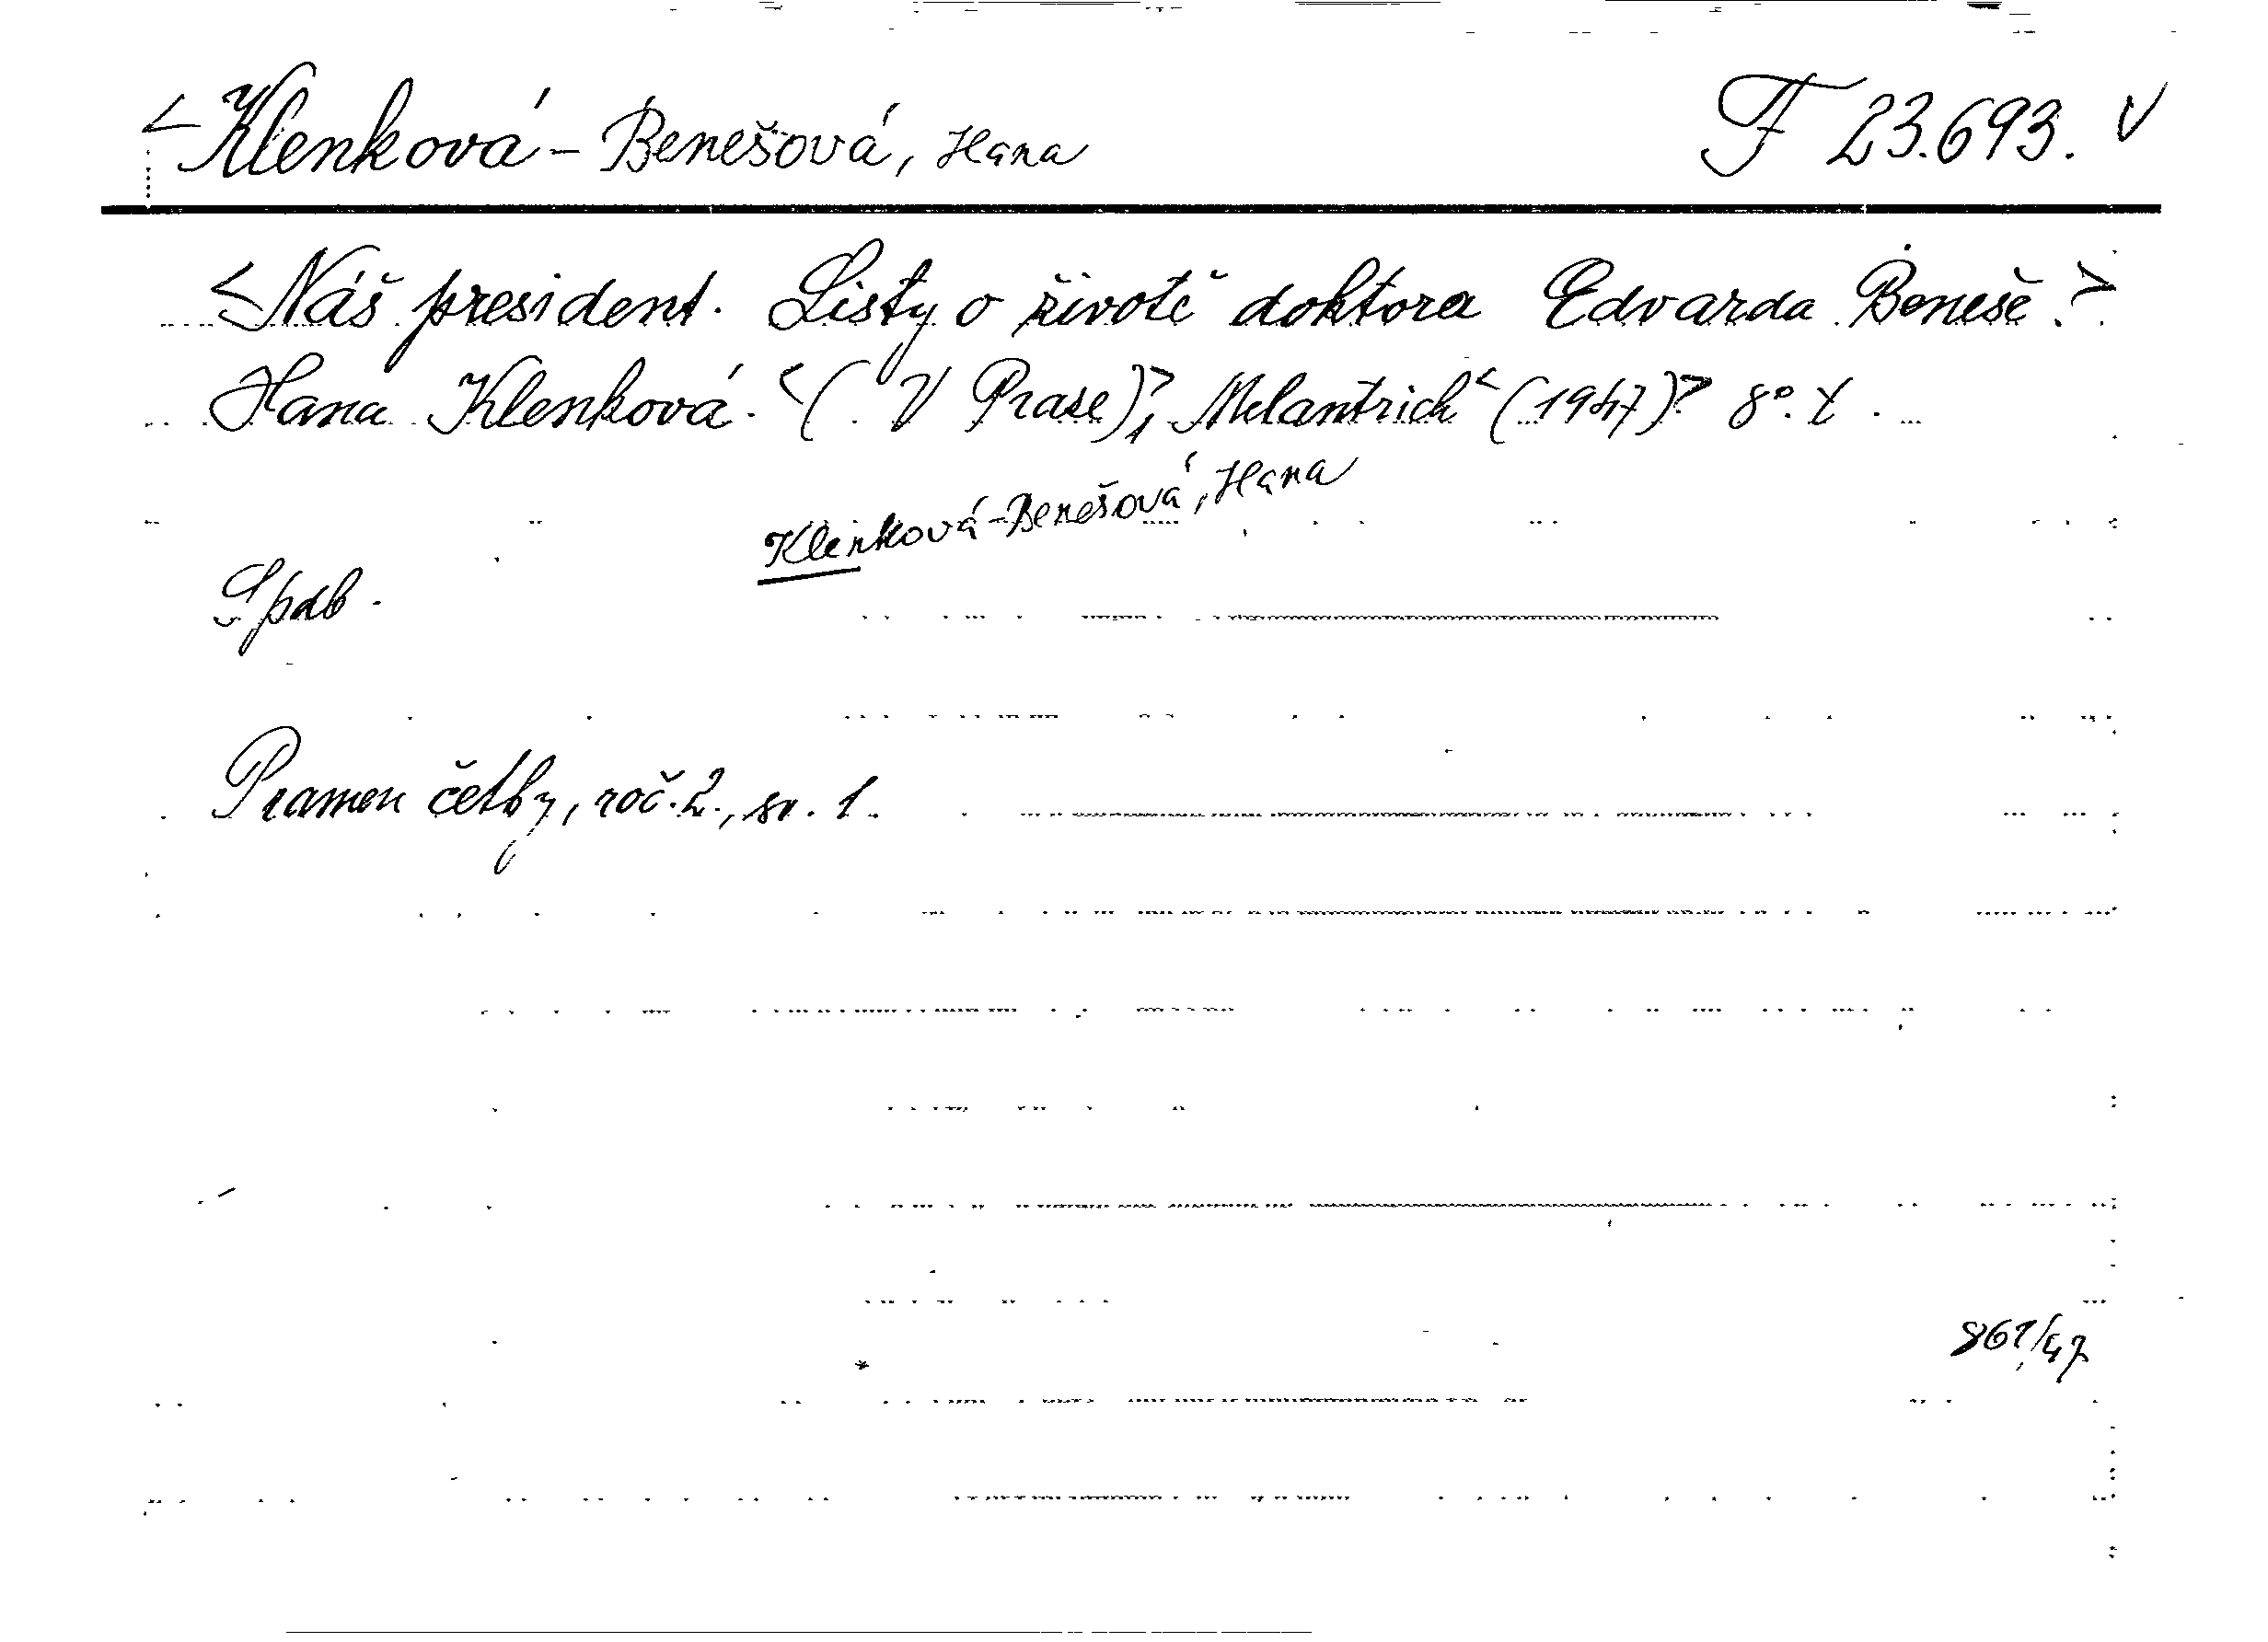 <Klenková-Benešová, Hana F 23.693. v
<Náš president. Listy o životě doktora Edvarda Beneše.>
Hana Klenková. <(V Praze)>, Melantrich <(1947)> 8°. t.
Klenková-Benešová, Hana
Špdb.
Pramen četby, roč. 2., sv. 1.
861/47